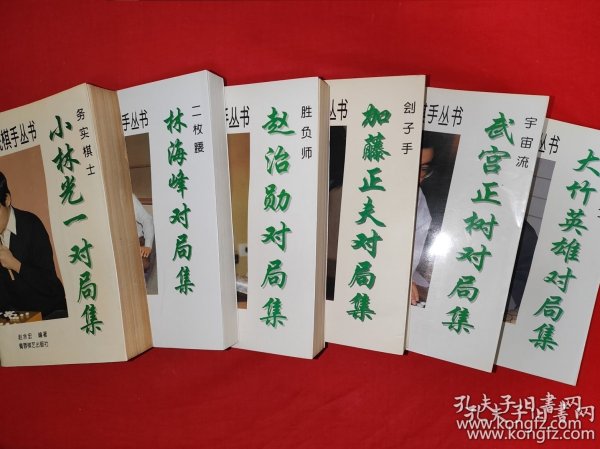 棋手丛书
务实棋士
小林光一对局集
赵余宏 编著
蜀蓉棋艺出版社
手丛书
二枚腰
林海峰对局集
手丛书
胜负师
赵治勋对局集
丛书
刽子手
加藤正夫对局集
丛书
宇宙流
武宫正树对局集
丛书
大竹英雄对局集
孔夫子旧書网
孔夫子旧書网
www.kongfz.com
www.kongfz.com